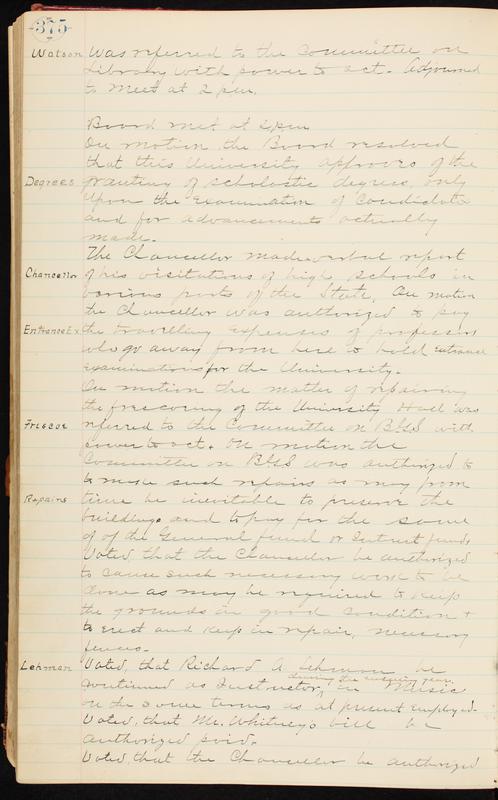 375
Watson Was referred to the Committee on
Library with power to act. Adjourned
to meet at 2 p.m.
Board met at 2 p.m.
On motion the Board resolved
that this University approves of the
Degrees granting of scholastic degrees, only
upon the examination of Candidates
and for advancements actually
made.
The Chancellor made verbal report
Chancellor of his visitations of high schools in
various parts of the State. On motion
the Chancellor was authorized to pay
Entrance Ex. the travelling expenses of professors
who go away from here to hold entrance
examinations for the University.
On motion the matter of repairing
the frescoing of the University Hall was
Friscoe referred to the Committee on B&G with
power to act. On motion the
Committee on B&G was authorized to
to make such repairs as may from
Repairs time be inevitable to preserve the
buildings and to pay for the same
of of the General fund or Interest funds
Voted, that the Chancellor be authorized
to cause such necessary work to be
done as may be required to keep
the grounds in good condition +
to erect and keep in repair, necessary
fences.
Lehman Voted, that Richard A Lehman be
during the ensuing year.
continued as Instructor, in Music
on the same terms as at present employed.
Voted, that Mr. Whitney's bill be
authorized paid.
Voted, that the Chancellor be authorized